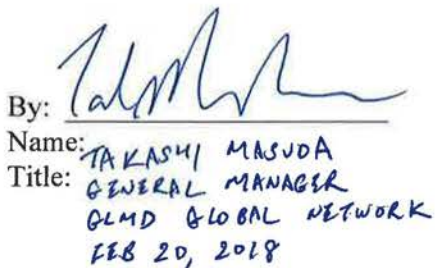 By:
Name: TAKASHI MASUDA
Title: GENERAL MANAGER
GLMD GLOBAL NETWORK
FEB 20, 2018